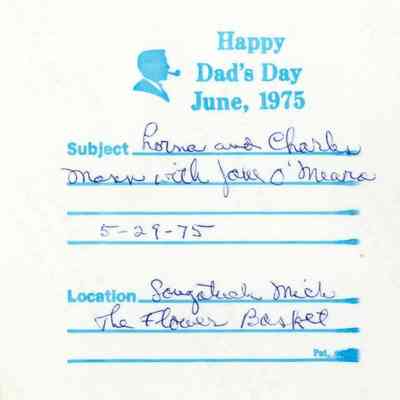 Happy
Dad's Day
June, 1975
Subject Lorna and Charles
Mann with Jane O'Meara
5-29-75
Location Saugatuck Mich
The Flower Basket
Pat.